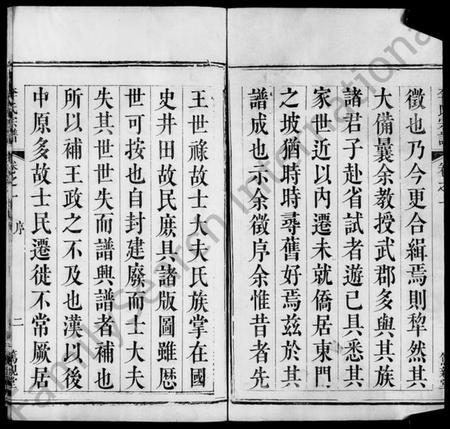 徵也乃今更合緝焉則犂然其
大備曩余教授武郡多與其族
諸君子赴省試者遊已具悉其
家世近以內遷未就僑居東門
之坡猶時時尋舊好焉茲於其
譜成也示余徵序余惟昔者先
王世祿故士大夫氏族掌在國
史井田故民庶具諸版圖雖歷
世可按也自封建廢而士大夫
失其世世失而譜興譜者補也
所以補王政之不及也漢以後
中原多故士民遷徙不常厥居
李氏宗譜 卷之一 序 二
FamilySearch International